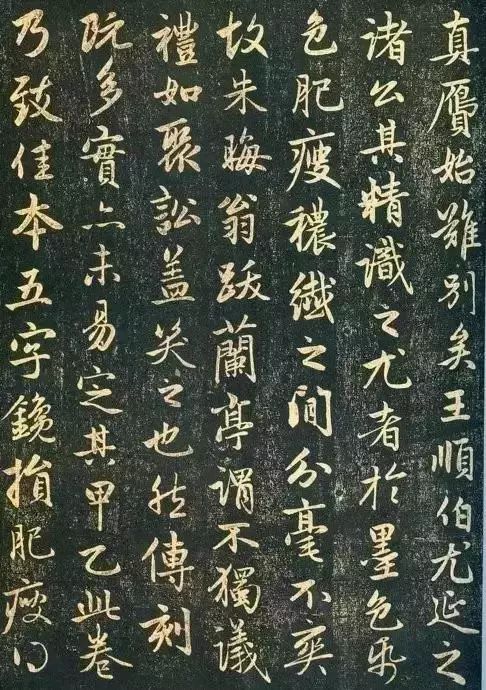 真贗始難別矣王順伯尤延之
諸公其精識之尤者於墨色紙
色肥瘦穠纖之間分毫不爽
故朱晦翁跋蘭亭謂不獨議
禮如聚訟盖笑之也然傳刻
既多實亦未易定其甲乙此卷
乃致佳本五字鑱損肥瘦